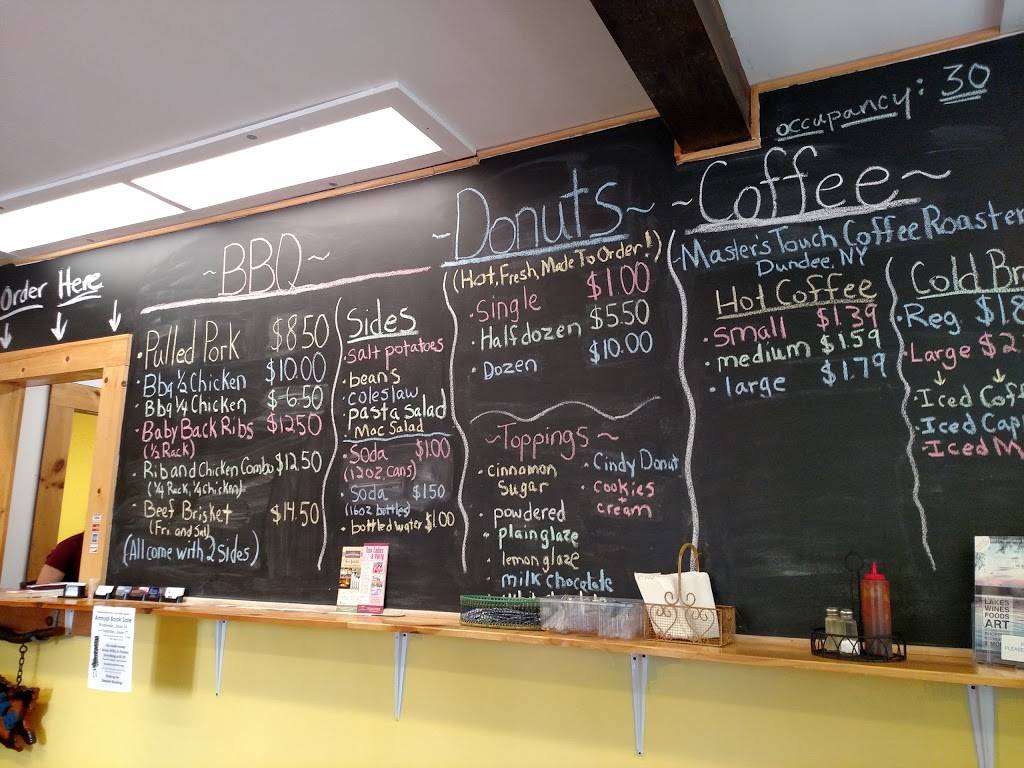 occupancy: 30
Order Here
~BBQ~
Pulled Pork $8.50
Bbq ½ Chicken $10.00
Bbq ¼ Chicken $6.50
Baby Back Ribs $12.50
(½ Rack)
Rib and Chicken Combo $12.50
(¼ Rack, ¼ Chicken)
Beef Brisket $14.50
(Fri. and Sat)
(All come with 2 Sides)
Sides
salt potatoes
beans
coleslaw
Pasta Salad
Mac Salad
Soda $1.00
(12oz cans)
Soda $1.50
(16oz bottles)
bottled water $1.00
~Donuts~
(Hot, Fresh, Made To Order!)
Single $1.00
Half dozen $5.50
Dozen $10.00
~Toppings~
cinnamon
Sugar
powdered
plain glaze
lemon glaze
milk chocolate
Cindy Donut
cookies
+
cream
~Coffee~
Master's Touch Coffee Roaster
Dundee, NY
Hot Coffee
Small $1.39
medium $1.59
large $1.79
Cold Br
Reg. $1.8
Large $2
Iced Coff
Iced Cap
Iced M
Annual Book Sale
LAKES
WINES
FOODS
ART